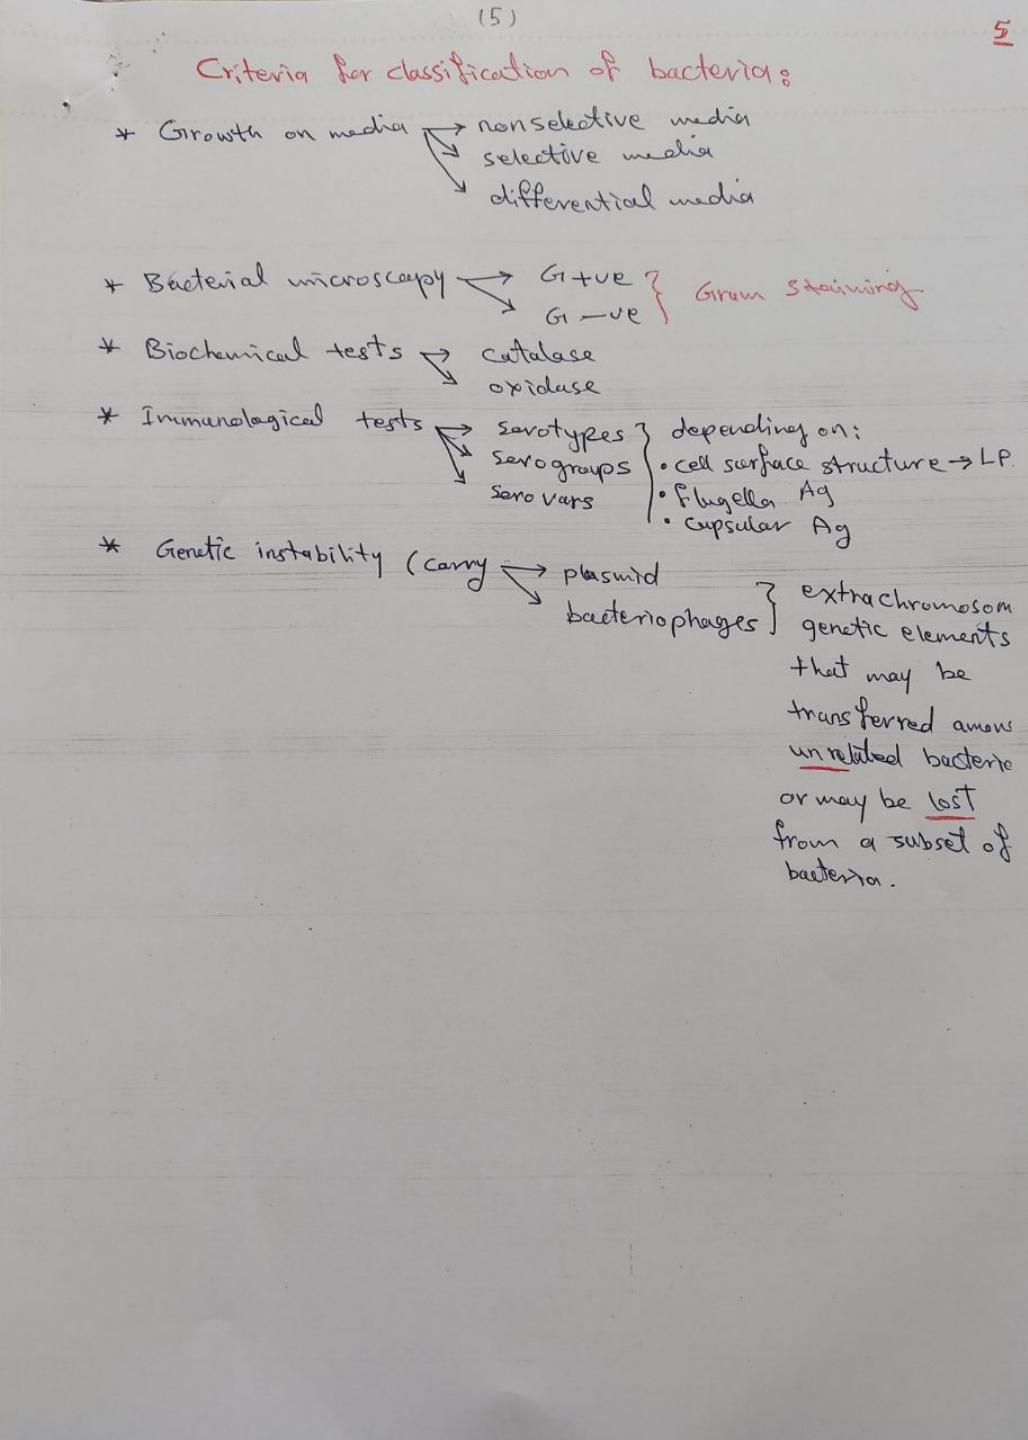 (5)
5
Criteria for classification of bacteria:
* Growth on media → nonselective media
→ selective media
→ differential media
* Bacterial microscopy → G+ve } Gram staining
→ G-ve
* Biochemical tests → catalase
→ oxidase
* Immunological tests → serotypes } depending on:
→ serogroups • cell surface structure → LP
→ serovars • flagella Ag
• capsular Ag
* Genetic instability (carry → plasmid
→ bacteriophages } extrachromosom
genetic elements
that may be
transferred among
unrelated bacteria
or may be lost
from a subset of
bacteria.